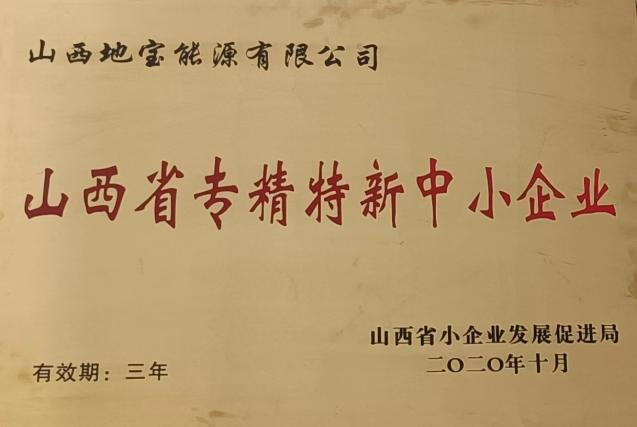 山西地宝能源有限公司
山西省专精特新中小企业
山西省小企业发展促进局
有效期：三年
二〇二〇年十月